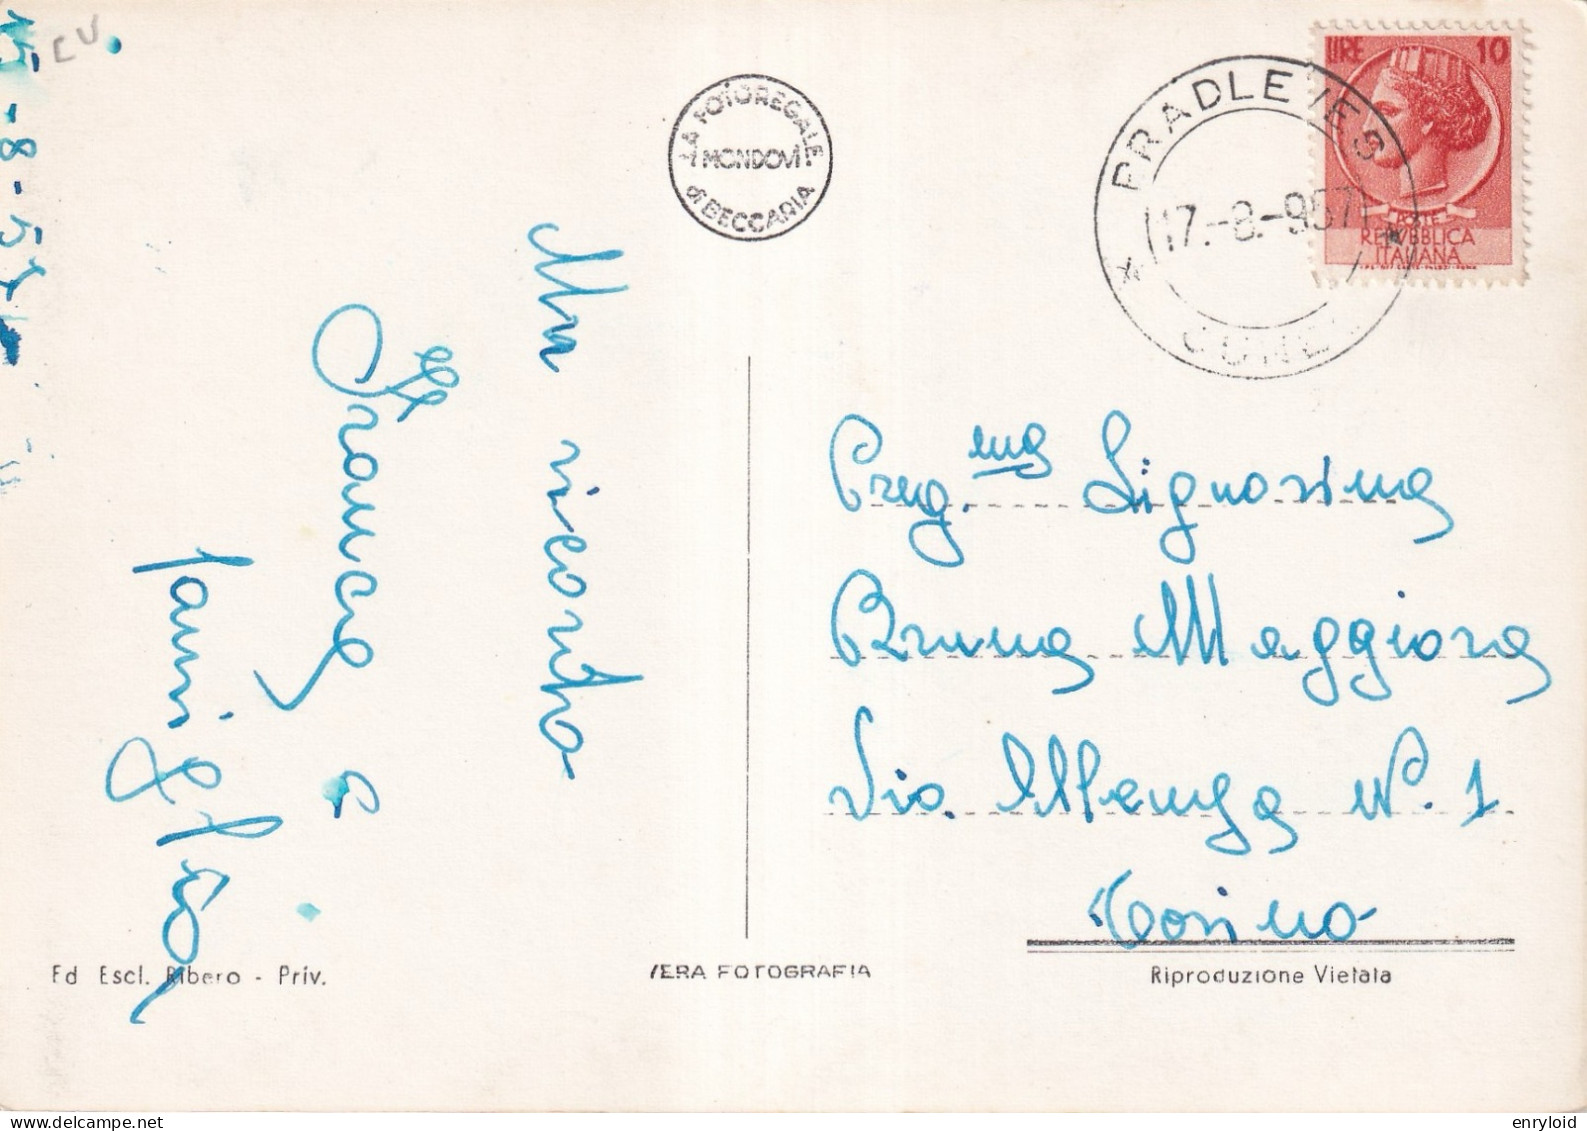 15-8-57
CV
LA FOTOREGALE
MONDOVÌ
di BECCARIA
LIRE 10
REPVBBLICA
ITALIANA
PRADLEVES
17.-8.-957
CUNEO
Un ricordo
Franca e
famiglia
Preg.ma Signorina
Bruna Maggiora
Via
N. 1
Torino
Ed Escl. Ribero - Priv.
VERA FOTOGRAFIA
Riproduzione Vietata
enryloid